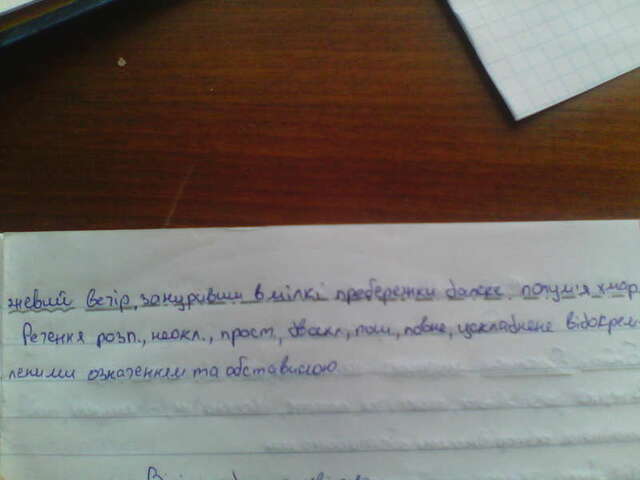 жевий ветір, зануривши в мілкі пребережки далеке полум'я хмар.
Речення розп., неокл., прост., двоскл., пош., повне, ускладнене відокрем
леними означенням та обставиною.